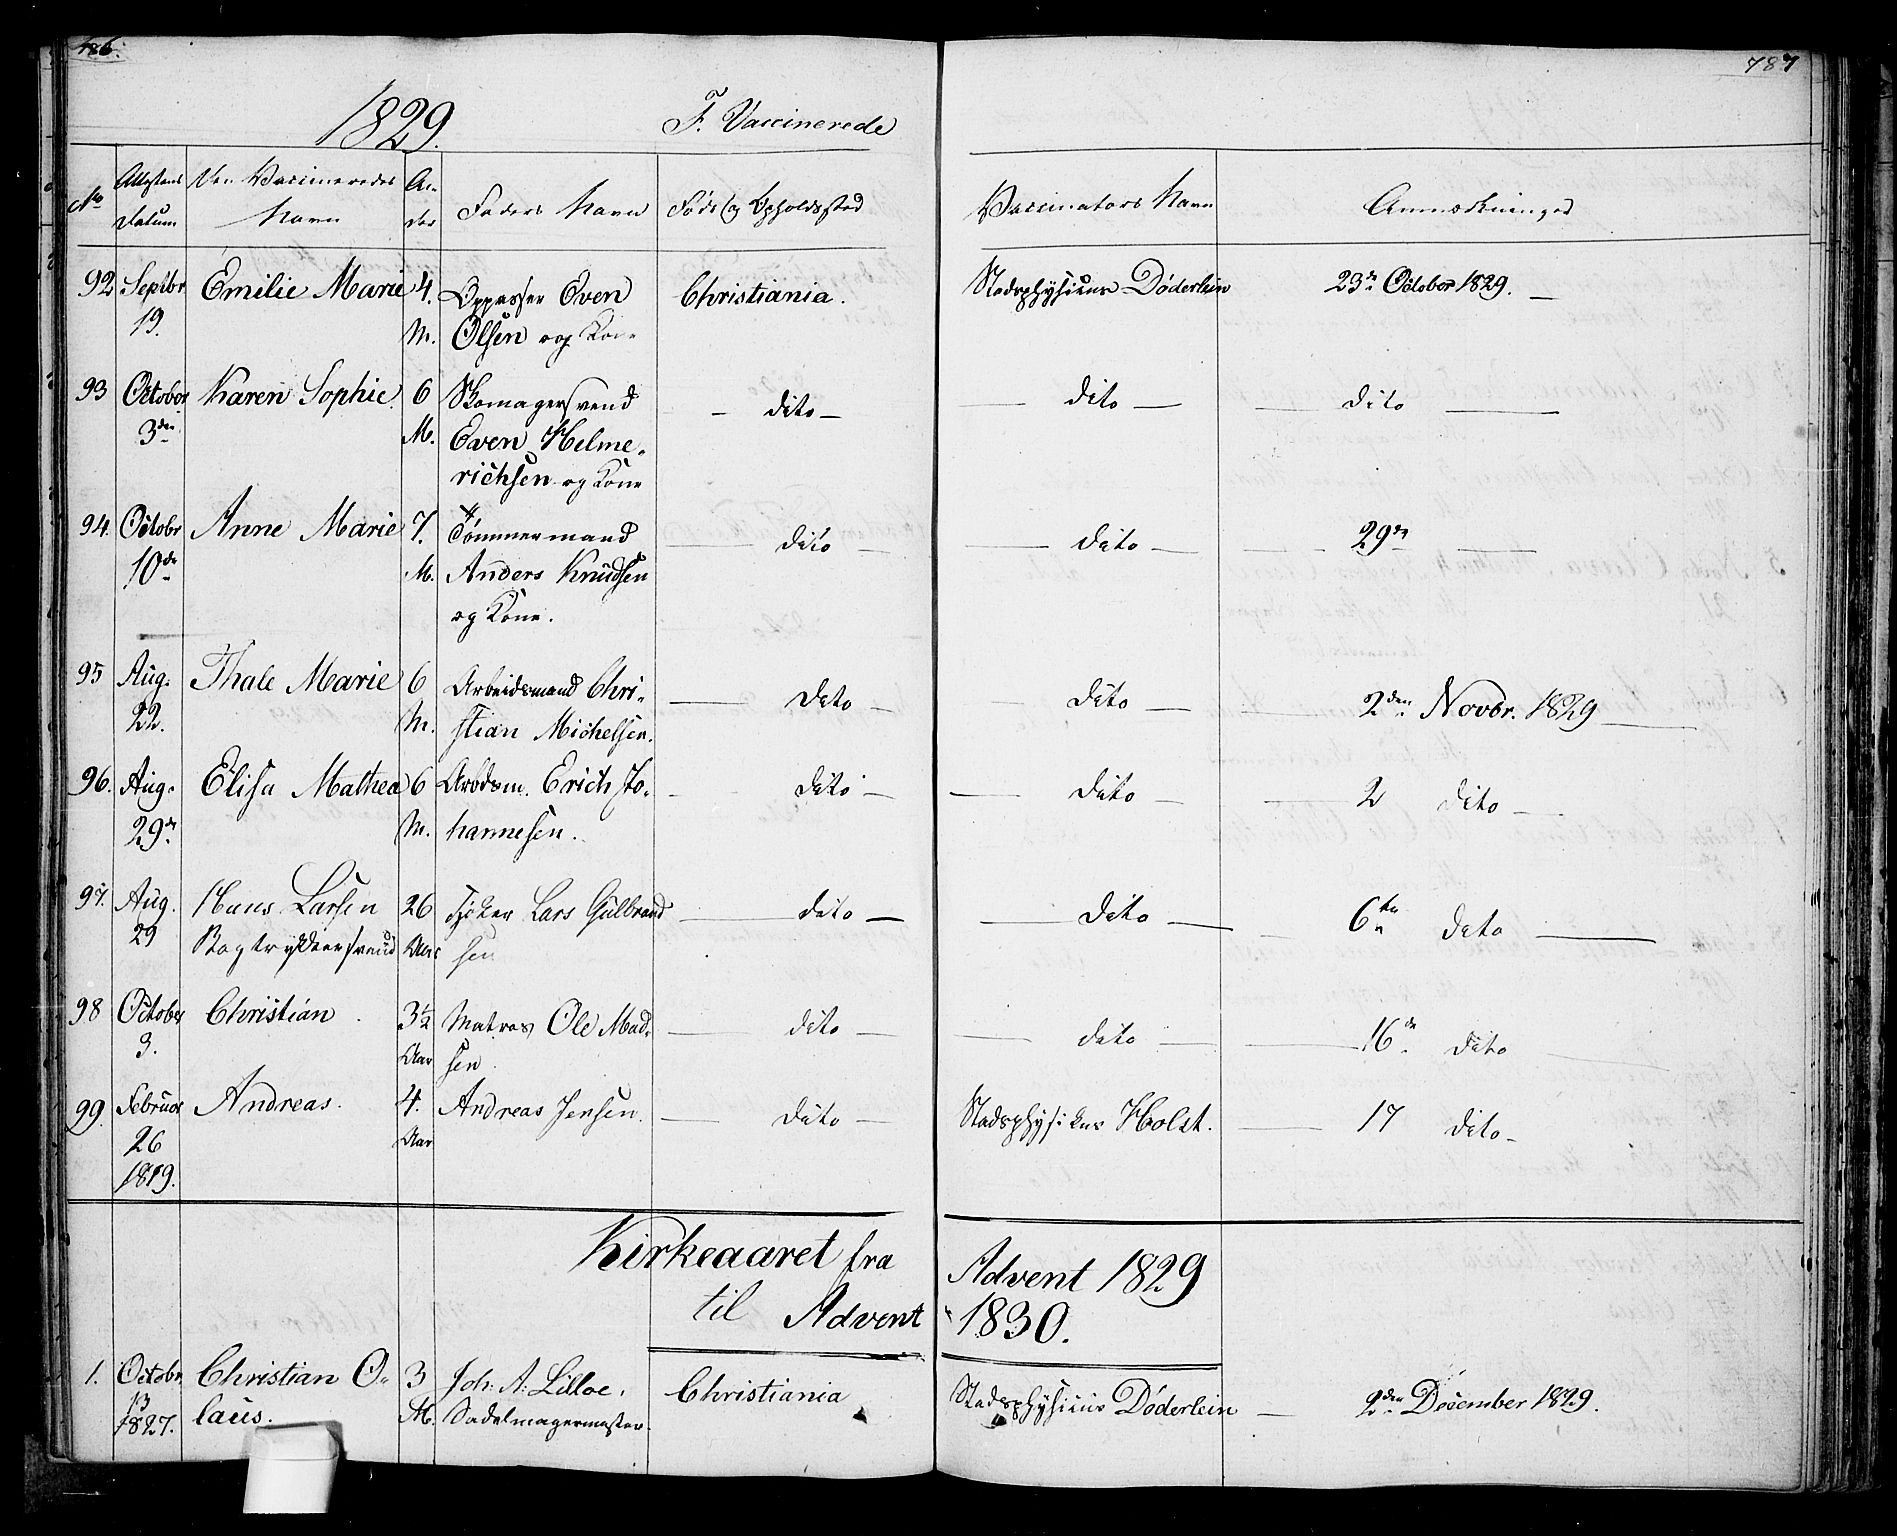 486.
787
1829.
F. Vaccinerede
No
Attestens Datum
Den Vaccineredes Navn
Alder
Faders Navn
Føde og Opholdssted
Vaccinators Navn
Anmærkninger
92 Septbr 19. Emilie Marie 4. M. Oppasser Even Olsen og Kone Christiania. Stadsphysicus Døderlein 23de October 1829. —
93 October 3den Karen Sophie. 6 M. Skomagersvend Even Helmerichsen og Kone — dito — — dito — — dito —
94. Octobr 10de Anne Marie 7. M. Tømmermand Anders Knudsen og Kone. — dito — — dito — — 29de —
95 Aug. 22. Thale Marie 6 M. Arbeidsmand Christian Michelsen. — dito — — dito — — 2den Novbr. 1829 —
96. Aug. 29de Elisa Mathea 6 M. Arbdsm. Erich Johannesen. — dito — — dito — — 2 dito —
97. Aug. 29 Hans Larsen Bogtrykkersvend 26 Aar Lars Gulbrandsen — dito — — dito — — 6te dito —
98 October 3. Christian. 3½ Aar Matros Ole Madsen. — dito — — dito — — 16de dito —
99. Februar 26 1819. Andreas. 4. Aar Andreas Jensen. — dito — Stadsphysikus Holst. — 17 dito —
Kirkeaaret fra Advent 1829
til Advent 1830.
1. Octobr 13 1827. Christian Olaus. 3 M. Joh: A: Lilloe, Sadelmagermester. Christiania Stadsphysicus Døderlein — 2den December 1829.